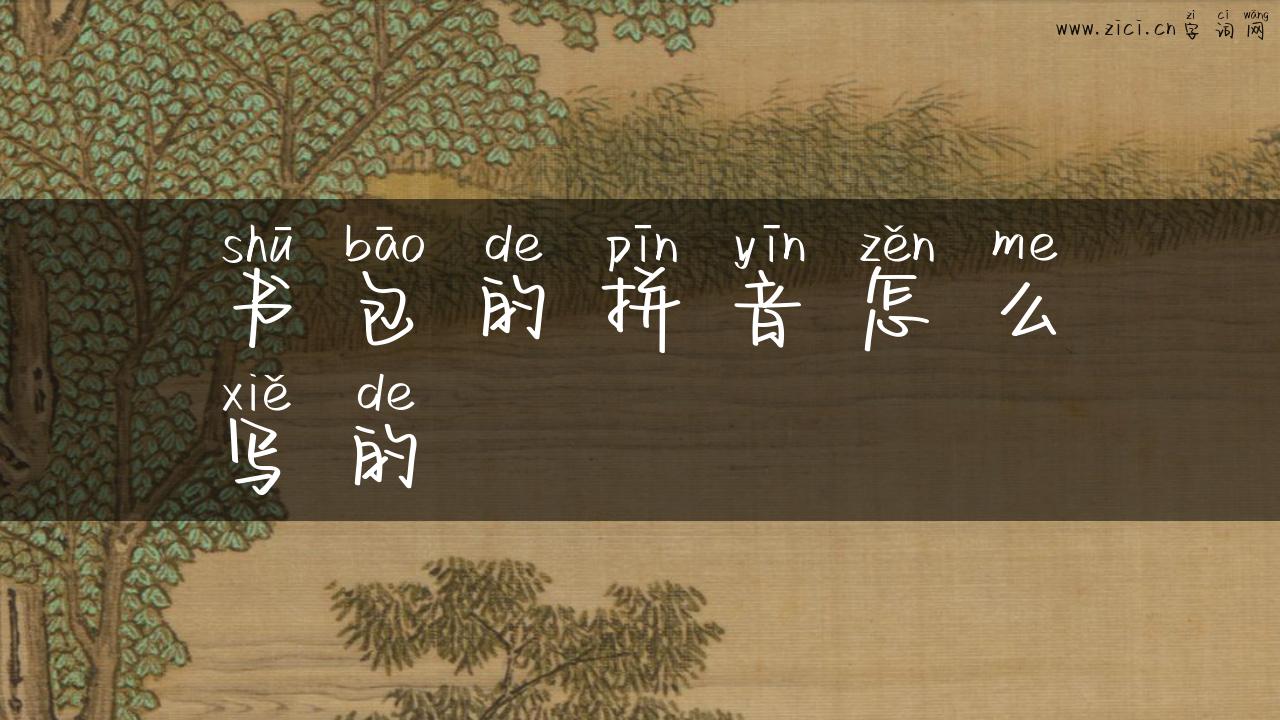 zì cí wǎng
www.zici.cn 字词网
shū bāo de pīn yīn zěn me
书包的拼音怎么
xiě de
写的